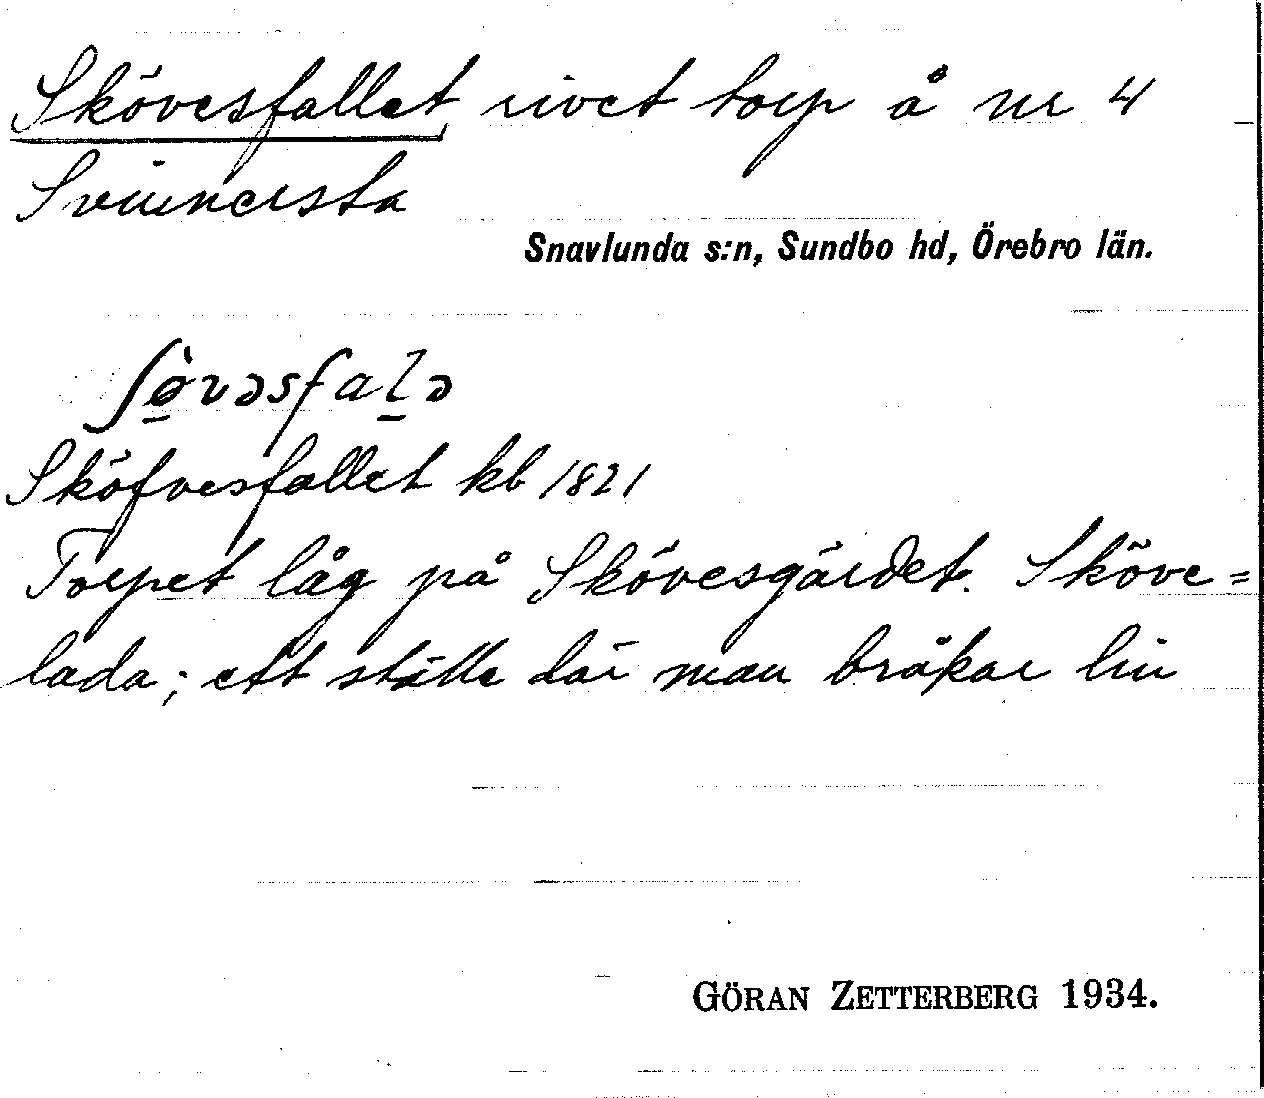 Skövesfallet, rivet torp å nr 4
Svinnersta
Snavlunda s:n, Sundbo hd, Örebro län.
ʃø̠̀vəsfal̠ə
Sköfvesfallet kb 1821
Torpet låg på Skövesgärdet. Sköve=
lada; ett ställe där man bråkar lin
GÖRAN ZETTERBERG 1934.